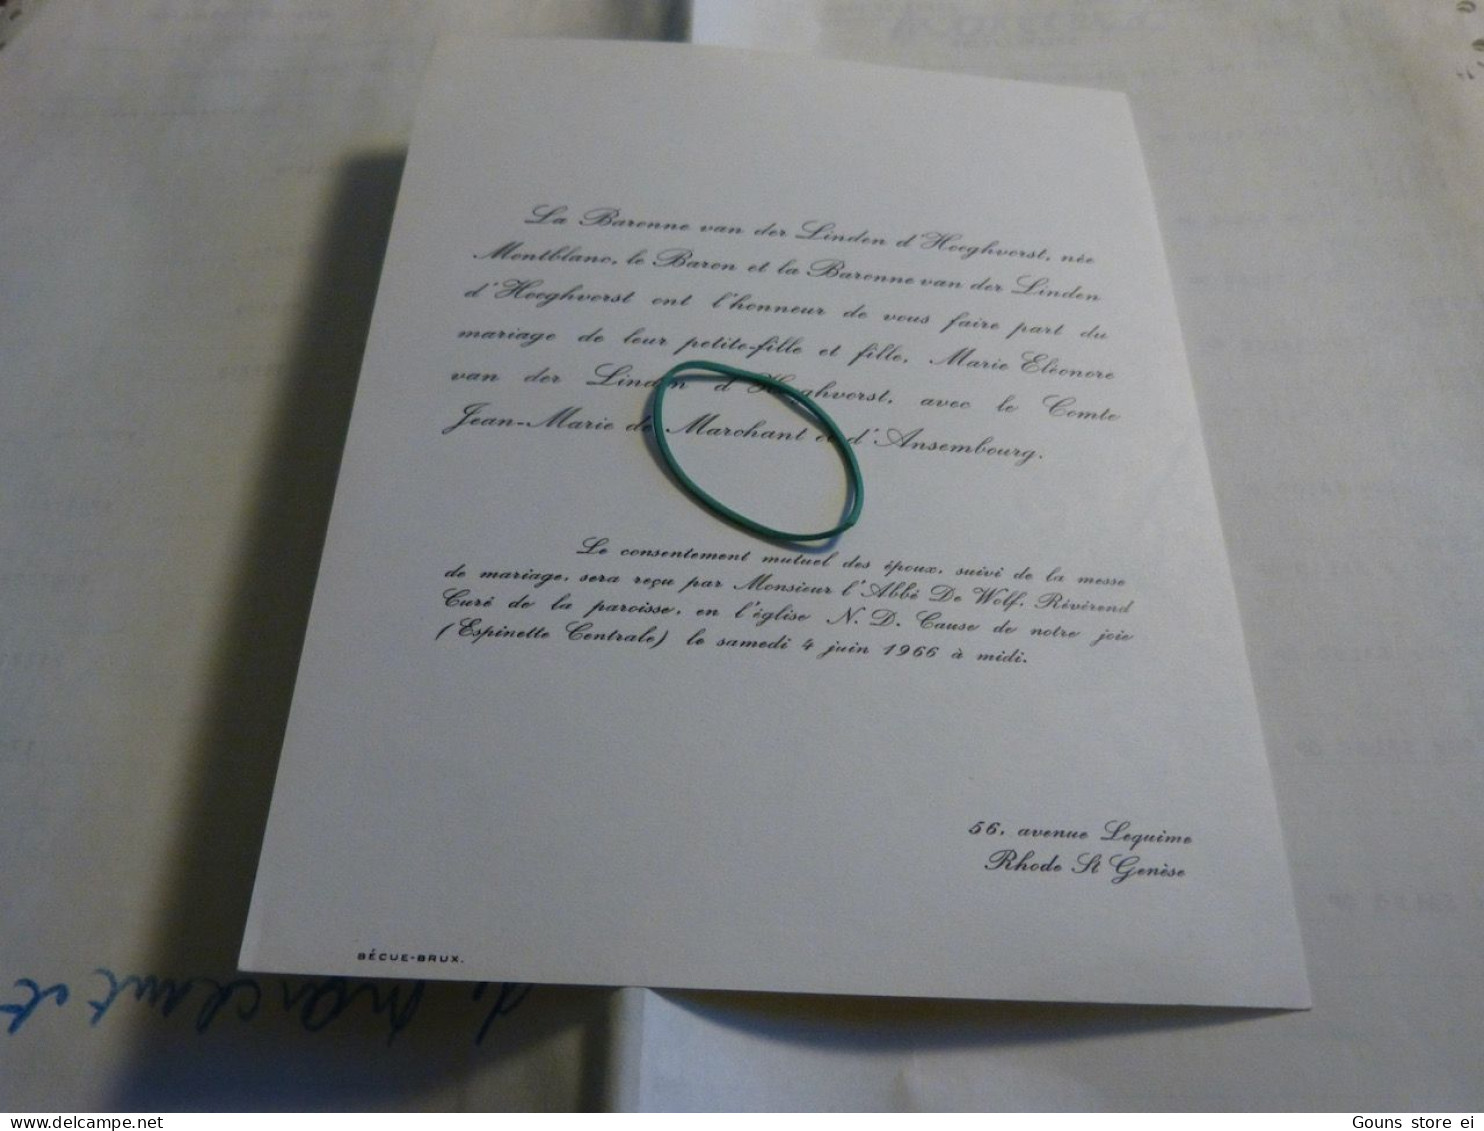 La Baronne van der Linden d'Hooghvorst, née
Montblanc, le Baron et la Baronne van der Linden
d'Hooghvorst ont l'honneur de vous faire part du
mariage de leur petite-fille et fille, Marie Eléonore
van der Linden d'Hooghvorst, avec le Comte
Jean-Marie de Marchant et d'Ansembourg.
Le consentement mutuel des époux, suivi de la messe
de mariage, sera reçu par Monsieur l'Abbé De Wolf, Révérend
Curé de la paroisse, en l'église N. D. Cause de notre joie
(Espinette Centrale) le samedi 4 juin 1966 à midi.
56, avenue Lequime
Rhode St Genèse
BÉCUE-BRUX.
de Marchant et
delcampe.net
Gouns store ei